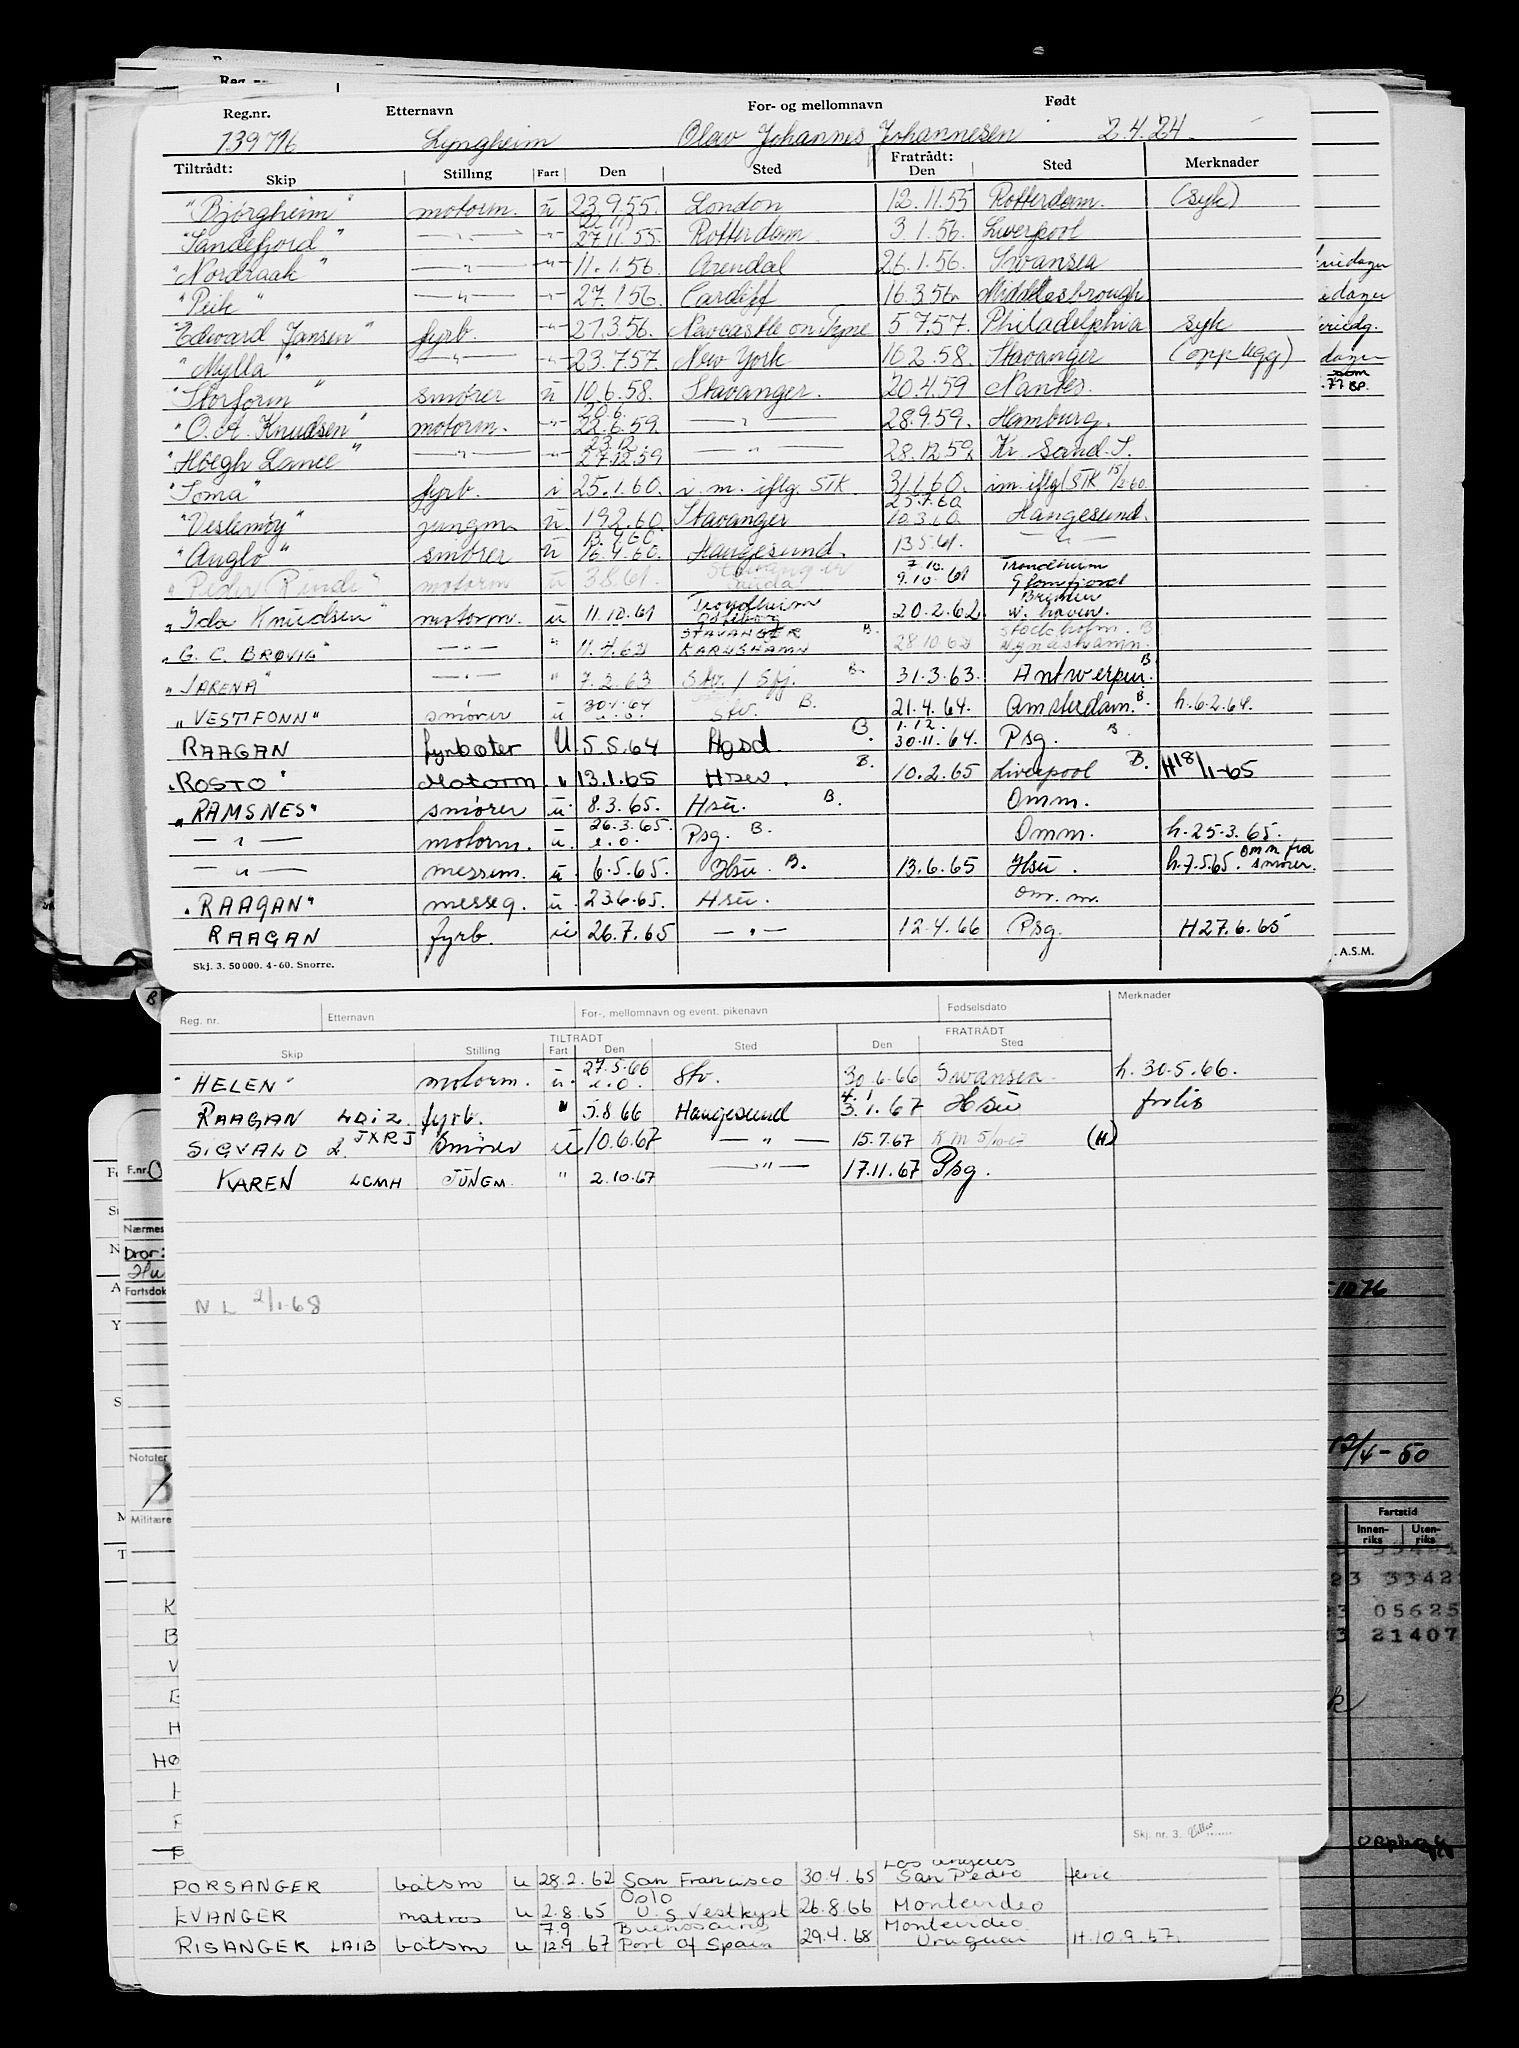 Reg.nr. Etternavn For- og mellomnavn Født
139796 Lyngheim Olav Johannes Johannesen 2.4.24
Tiltrådt: Skip Stilling Fart Den Sted Fratrådt: Den Sted Merknader
"Bjørgheim" motorm. u 23.9.55. London 12.11.55 Rotterdam. (syk)
"Sandefjord" —"— -"- 27.11.55. Rotterdam 3.1.56. Liverpool
"Nordraak" —"— -"- 11.1.56. Arendal 26.1.56. Swansea
"Peik" —"— -"- 27.1.56. Cardiff 16.3.56 Middlesbrough
"Edward Jansen" fyrb. -"- 21.3.56. Newcastle on Tyne 5.7.57. Philadelphia syk
"Mylla" —"— -"- 23.7.57. New York 16.2.58. Stavanger (opplegg)
"Storform" smører u 10.6.58. Stavanger. 20.4.59 Nantes.
"O. A. Knudsen" motorm. -"- 20.6. 22.6.59. —"— 28.9.59. Hamburg.
"Høegh Lance" —"— -"- 23.12. 27.12.59 —"— 28.12.59 Kr. Sand. S.
"Toma" fyrb. i 25.1.60. i.m. iflg. STK 31.1.60. im. iflg STK 15/2 60.
"Veslemøy" jungm. u 19.2.60. Stavanger 10.3.60. Haugesund.
"Anglo" smører u 16.4.60. Haugesund. 13.5.61. —"—
"Peder Rinde" motorm u 3.8.61. Stavanger 7.10. 9.10.61 Trondheim Glomfjord
"Ida Knudsen" motorm. u 11.10.61 Trondheim 20.2.62 Bremen W. haven.
"G. C. BRØVIG" —"— " 11.4.62 STAVANGER KARLSHAMN B. 28.10.62 Stockholm. B Nynäshamn.
"JARENA" —"— " 7.2.63 Stv. / Sfj. B. 31.3.63. Antwerpen. B
"VESTFONN" smører u 30.1.64 e.o. Stv. B. 21.4.64. Amsterdam. B. h.6.2.64.
RAAGAN fyrbøter U 5.5.64 Hgsd. B. 1.12. 30.11.64. Psg. B
"ROSTO" Motorm. " 13.1.65 Hsev. B. 10.2.65 Liverpool B. H 18/1-65
"RAMSNES" smører u. 8.3.65. Hsu. B. Omm.
—"— motorm. u. 26.3.65. e.o. Psg. B. Omm. h.25.3.65.
—"— messem. u. 6.5.65. Hsu. B. 13.6.65 Hsu. h.7.5.65. omm fra smører.
"RAAGAN" messeg. u. 23.6.65. Hsu. om.m.
RAAGAN fyrb. u 26.7.65 —"— 12.4.66 Psg. H27.6.65
Skj. 3. 50 000. 4-60. Snorre.
. A.S.M.
Reg. nr. Etternavn For-, mellomnavn og event. pikenavn Fødselsdato Merknader
TILTRÅDT FRATRÅDT
Skip Stilling Fart Den Sted Den Sted
"HELEN" motorm. u. 27.5.66 e.o. Stv. 30.6.66 Swansea h. 30.5.66.
RAAGAN LDIZ fyrb. " 5.8.66 Haugesund 4.1 3.1.67 Hsu forlis
SIGVALD 2. JXRJ Smører u 10.6.67 —"— 15.7.67 K M 5/10-67 (H)
KAREN LCMH JUNGM. " 2.10.67 —"— 17.11.67 Psg.
NL 2/1-68
Skj. nr. 3.
F.nr.
Nærmes
bror:
Hu
Fartsdok
Notater
Militære
12/4-50
Fartstid
Innen-riks Uten-riks
23 3342
3 05625
3 21407
PORSANGER båtsm u 28.2.62 San Francisco 30.4.65 Los Angeles San Pedro ferie
EVANGER matros u 2.8.65 Oslo U.S Vestkyst 26.8.66 Montevideo
RISANGER LAIB båtsm u 7.9 12.9.67 Buenos Aires Port of Spain 29.4.68 Montevideo Uruguai H.10.9.67.